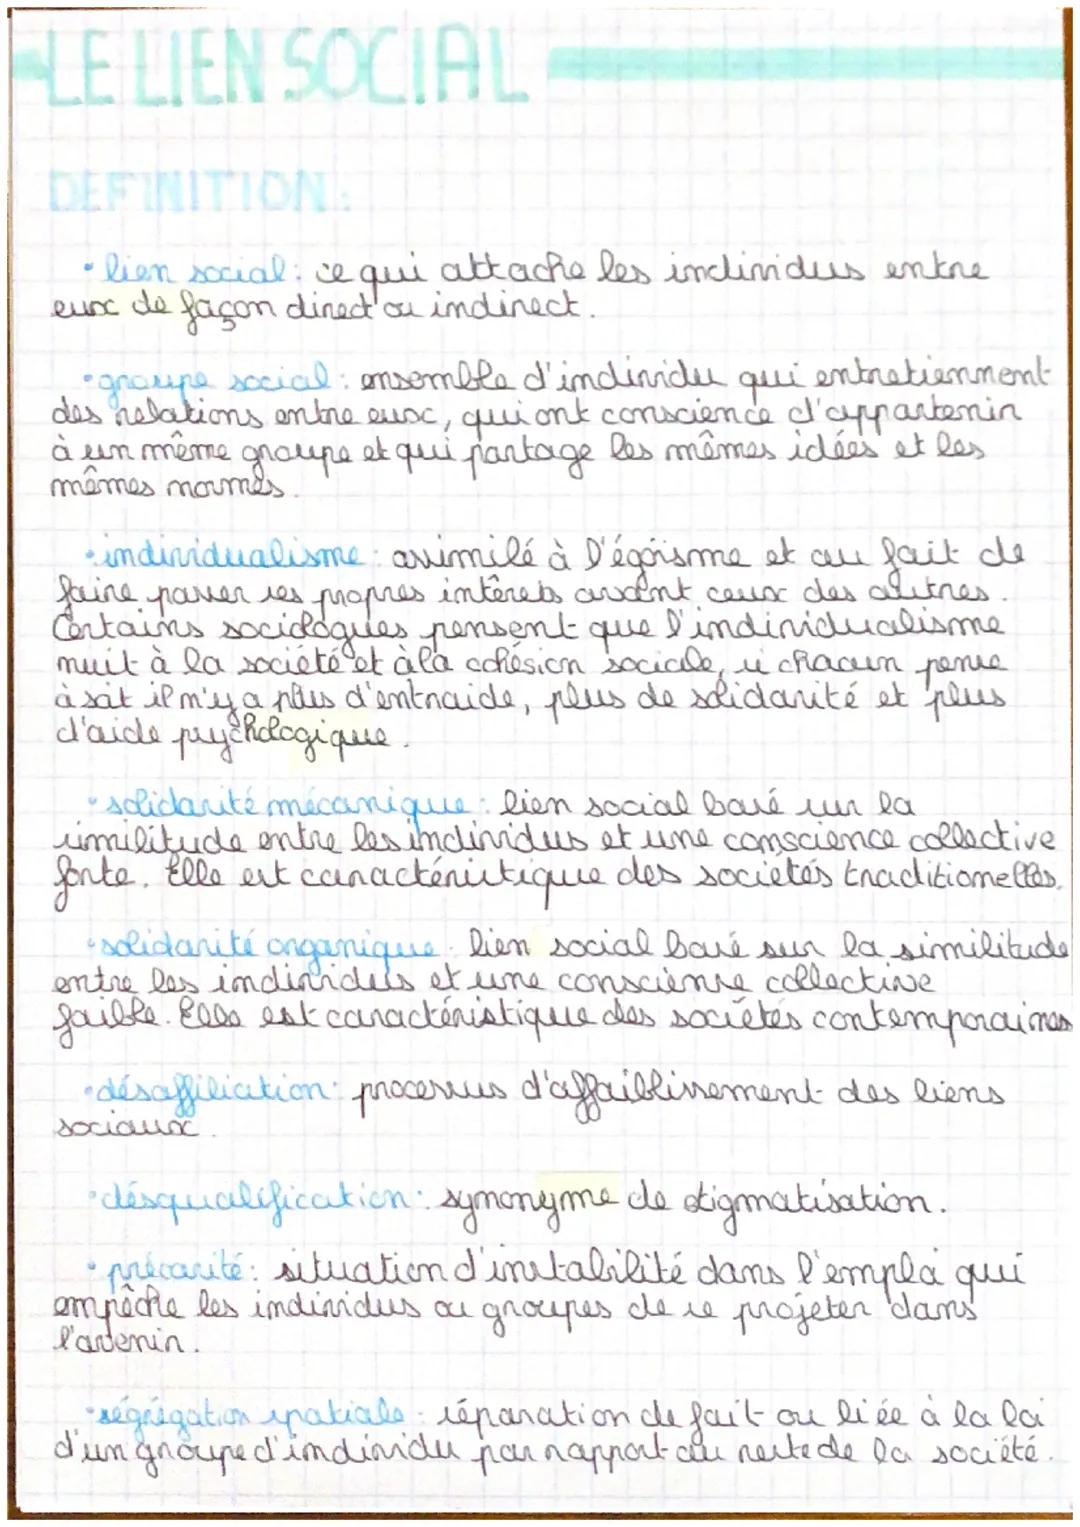 LE LIEN SOCIAL
DEFINITION:
• lien social: ce qui attache les individus entre
eux de façon direct ou indirect.
• groupe social: ensemble d'individu qui entretiennent
des relations entre eux, qui ont conscience d'appartenir
à un même groupe et qui partage les mêmes idées et les
mêmes normes.
• individualisme: assimilé à l'égoïsme et au fait de
faire passer ses propres intêrets avant ceux des autres.
Certains sociologues pensent que l'individualisme
nuit à la société et à la cohésion sociale, si chacun pense
à soit il n'y a plus d'entraide, plus de solidarité et plus
d'aide psychologique.
• solidarité mécanique: lien social basé sur la
similitude entre les individus et une conscience collective
forte. Elle est caractéristique des sociétés traditionelles.
• solidarité organique: lien social basé sur la similitude
entre les individus et une conscience collective
faible. Elle est caractéristique des sociétés contemporaines
• désaffiliation: processus d'affaiblissement des liens
sociaux.
• désqualification: synonyme de stigmatisation.
• précarité: situation d'instabilité dans l'emploi qui
empêche les individus ou groupes de se projeter dans
l'avenir.
• ségrégation spatiale: séparation de fait ou liée à la loi
d'un groupe d'individu par rapport au reste de la société.